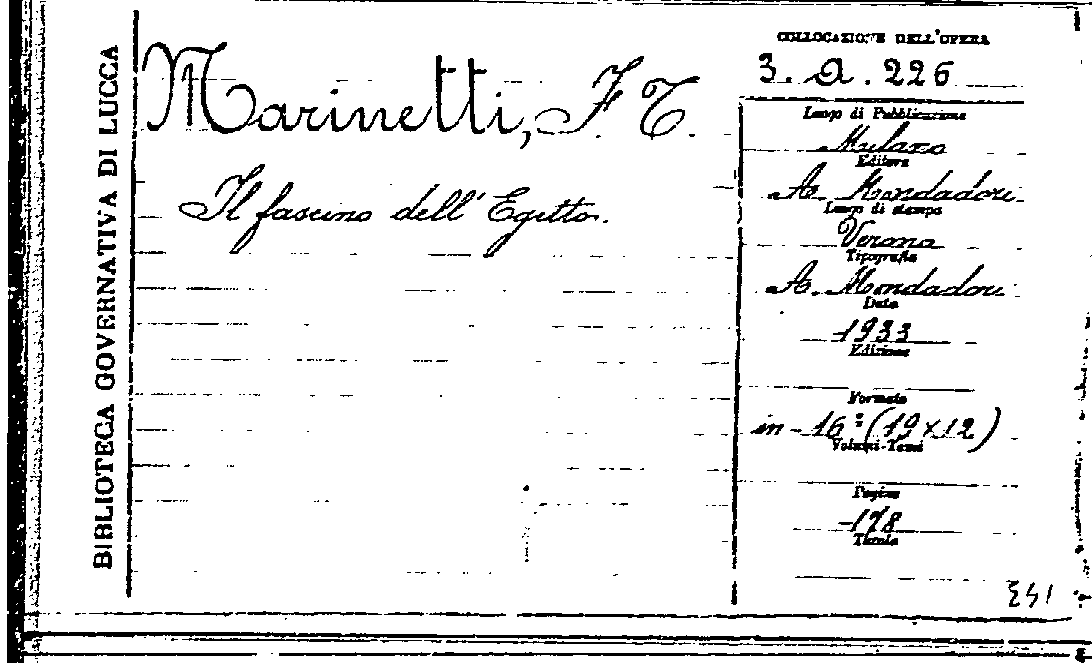 BIBLIOTECA GOVERNATIVA DI LUCCA
Marinetti, F. T.
Il fascino dell'Egitto.
COLLOCAZIONE DELL'OPERA
3. a. 226
Luogo di Pubblicazione
Milano
Editore
A. Mondadori
Luogo di stampa
Verona
Tipografia
A. Mondadori
Data
1933
Edizione
Formato
in-16° (19x12)
Volumi-Tomi
Pagine
178
Tavole